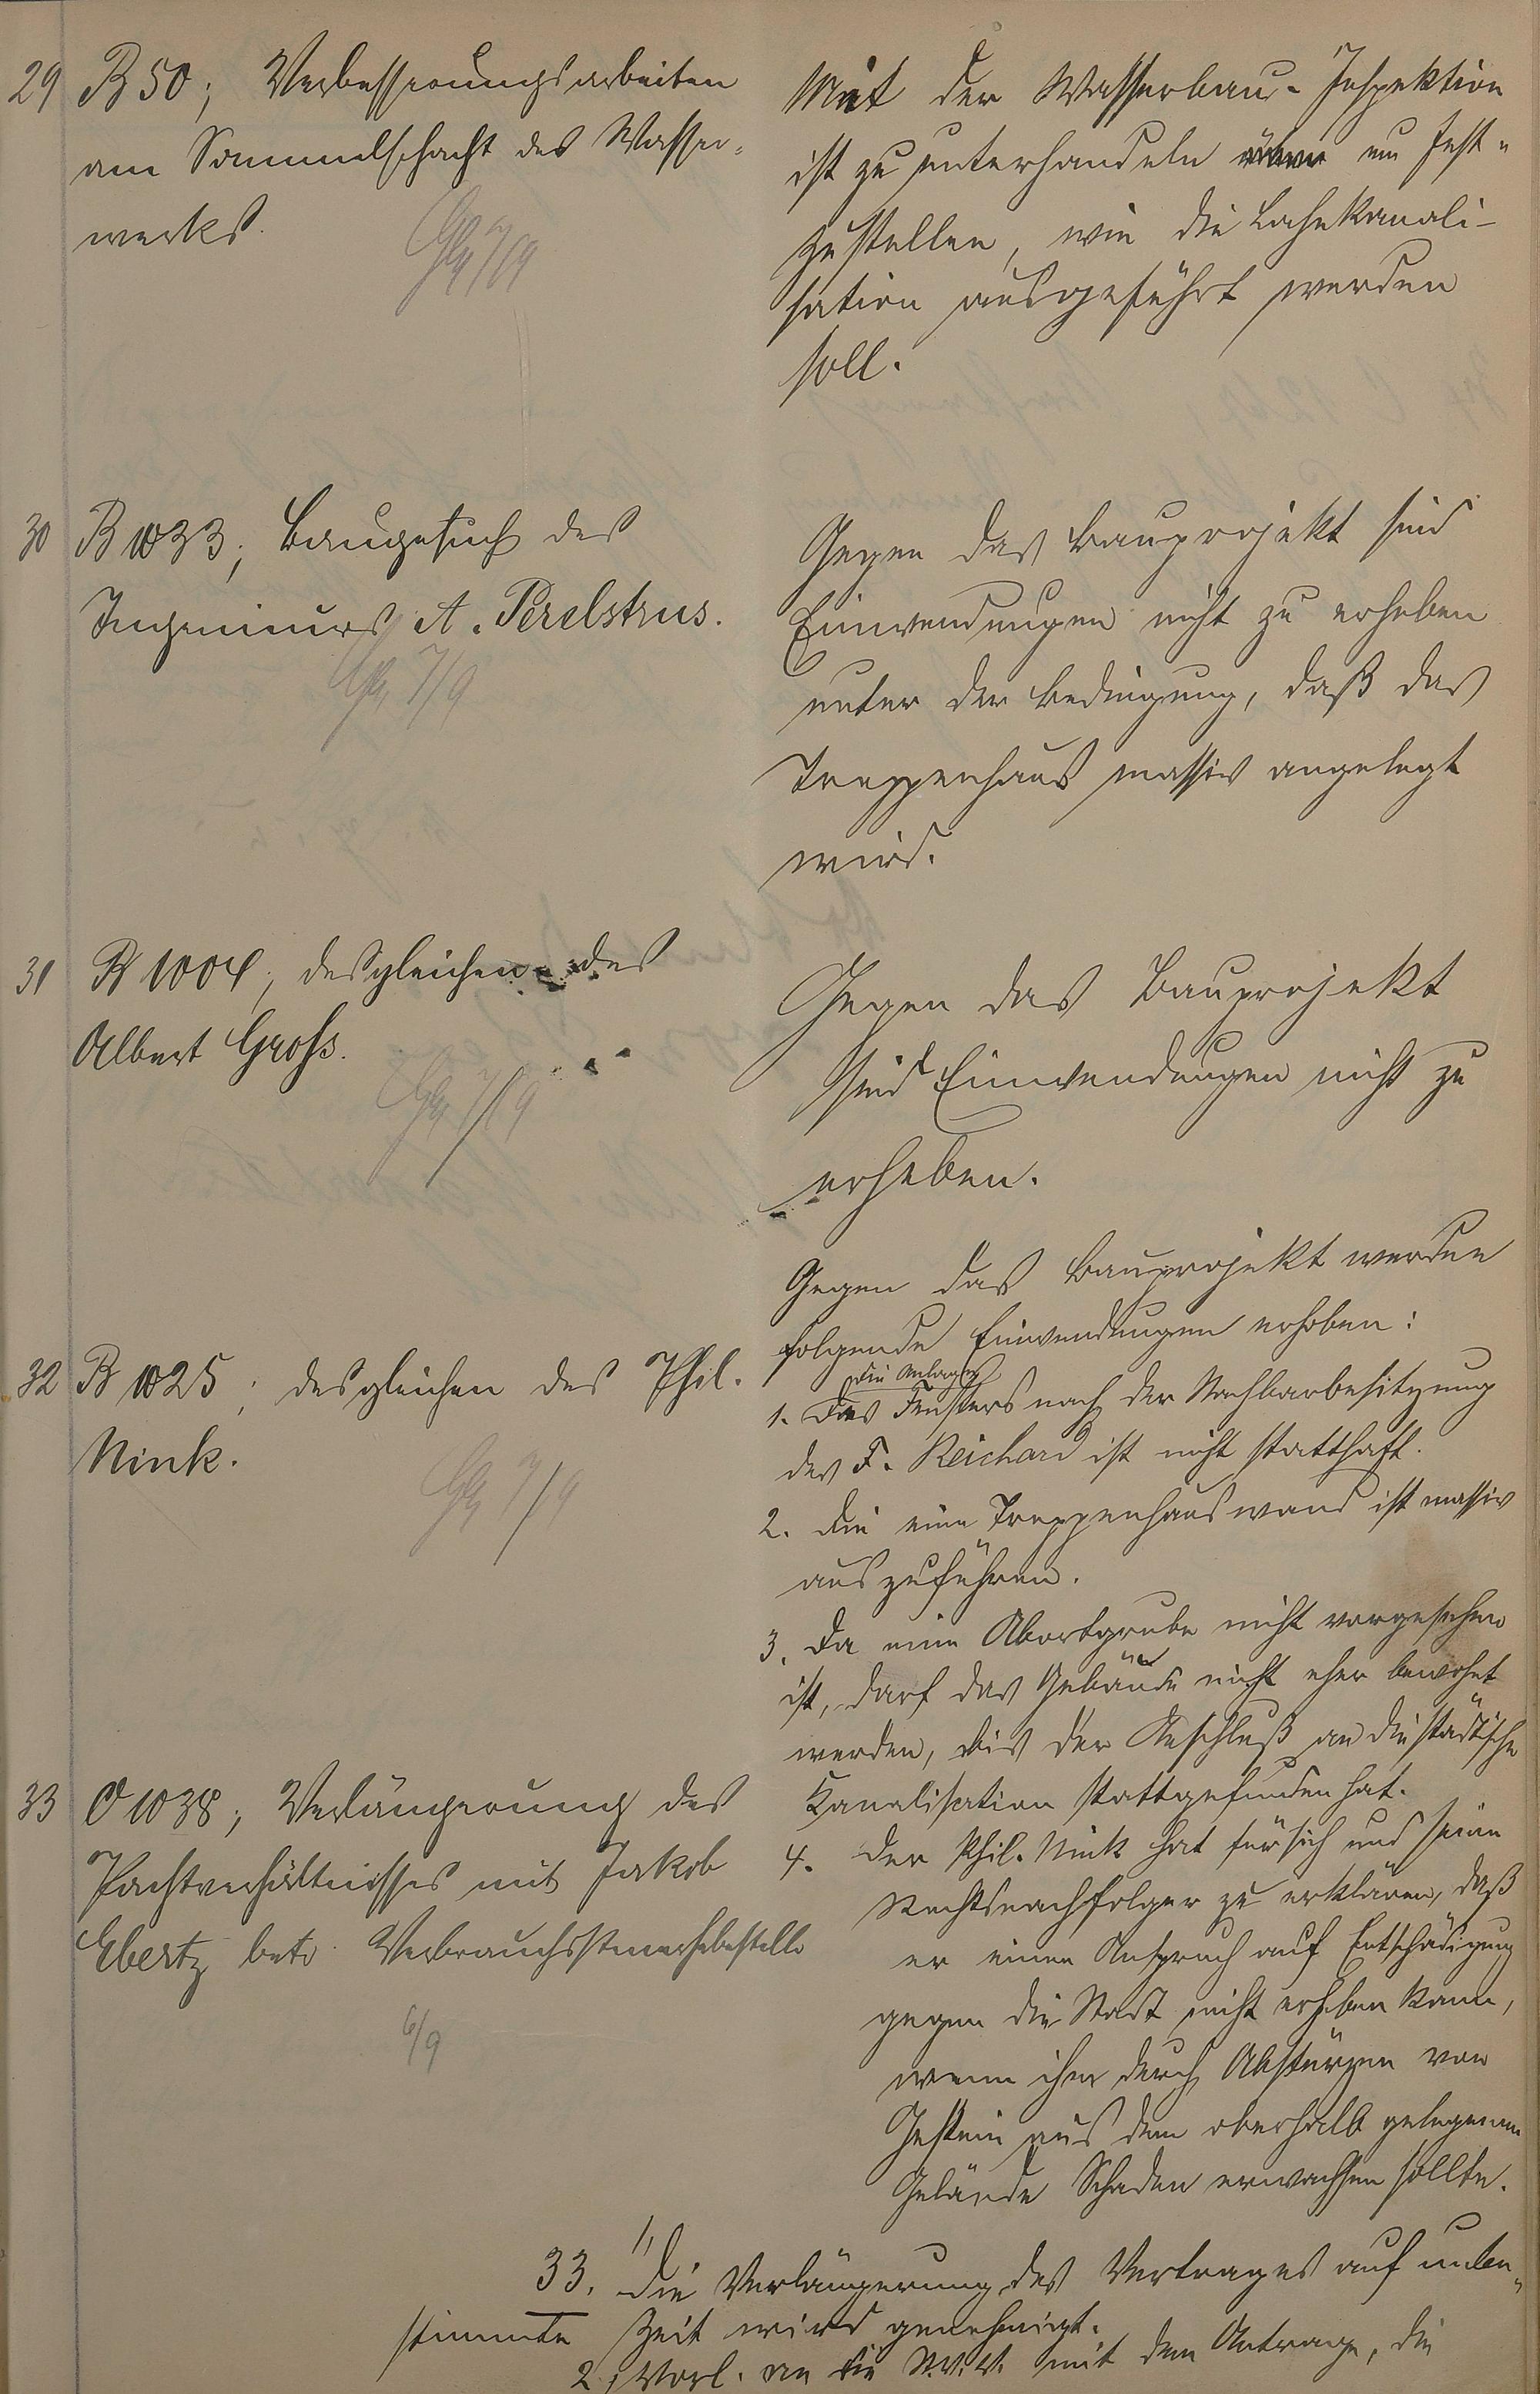 29 B 50; Verbesserungsarbeiten
am Sammelschacht des Wasser-
werks.
Mit der Wasserbau-Inspektion
ist zu unterhandeln um fest-
zustellen, wie die Lahnkanali-
sation ausgeführt werden
soll.
30 B 1033; Baugesuch des
Ingenieurs A. Perelstrus.
7/9
Gegen das Bauprojekt sind
Einwendungen nicht zu erheben
unter der Bedingung, daß das
Treppenhaus massiv angelegt
wird.
31 B 1004; desgleichen des
Albert Groß.
7/9
Gegen das Bauprojekt
sind Einwendungen nicht zu
erheben.
32 B 1025; desgleichen des Phil.
Nink.
7/9
Gegen das Bauprojekt werden
folgende Einwendungen erhoben:
die Anlage
1. Des Fensters nach der Nachbarbesitzung
des F. Reichard ist nicht statthaft.
2. Die eine Treppenhauswand ist massiv
auszuführen.
3. Da eine Abortgrube nicht vorgesehen
ist, darf das Gebäude nicht eher bewohnt
werden, bis der Anschluß an die städtische
Kanalisation stattgefunden hat.
4. Der Phil. Nink hat für sich und seine
Rechtsnachfolger zu erklären, daß
er einen Anspruch auf Entschädigung
gegen die Stadt nicht erheben kann,
wenn ihm durch Abstürzen von
Gestein aus dem oberhalb gelegenen
Gelände Schaden erwachsen sollte.
33 O 1038; Verlängerung des
Pachtverhältnisses mit Jakob
Ebertz betr. Verbrauchssteuerhebestelle
6/9
33. 1, Die Verlängerung des Vertrages auf unbe-
stimmte Zeit wird genehmigt.
2, Vorl. an die St.V.V. mit dem Antrage, die